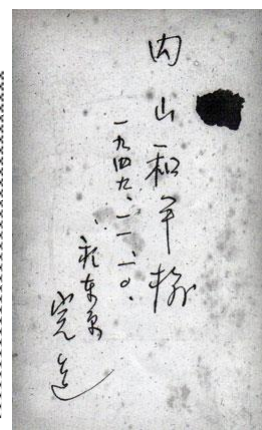 内山和平様
一九四九、一一、一〇、
於東京
完造